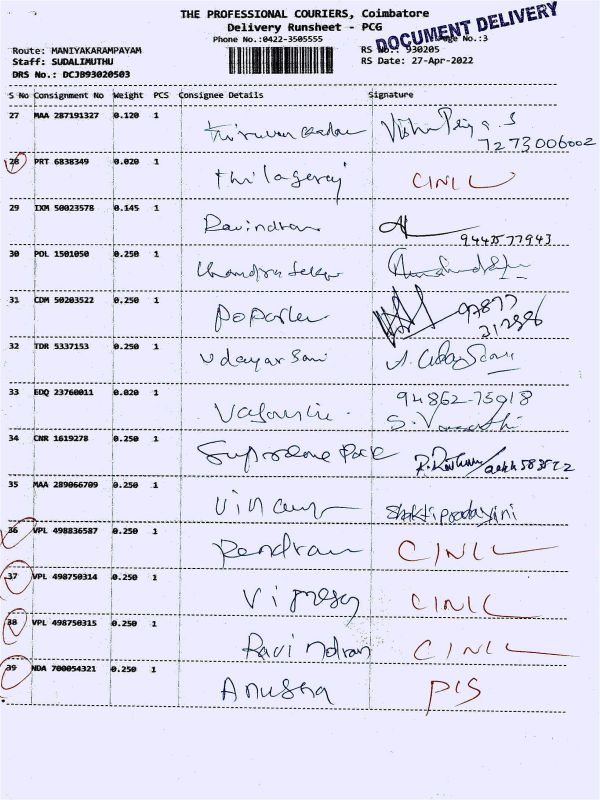 THE PROFESSIONAL COURIERS, Coimbatore
Delivery Runsheet - PCG
DOCUMENT DELIVERY
Phone No.:0422-3505555 Page No.:3
Route: MANIYAKARAMPAYAM RS No.: 930205
Staff: SUDALIMUTHU RS Date: 27-Apr-2022
DRS No.: DCJB93020503
S No Consignment No Weight PCS Consignee Details Signature
27 MAA 287191327 0.120 1
7273006002
28 PRT 6838349 0.020 1 Thilagaraj CINIL
29 IXM 50023578 0.145 1 Ravindran
9443577943
30 POL 1501050 0.250 1 Chandra Sekar
31 CDM 50203522 0.250 1
32 TDR 5337153 0.250 1 Udayar Sami
33 EDQ 23760011 0.020 1 94862-75918
34 CNR 1619278 0.250 1 Supreme
35 MAA 289066709 0.250 1 Shaktipradayini
36 VPL 498836587 0.250 1 CINIL
37 VPL 498750314 0.250 1 CINIL
38 VPL 498750315 0.250 1 Ravindran CINIL
39 NDA 700054321 0.250 1 Anusha PIS